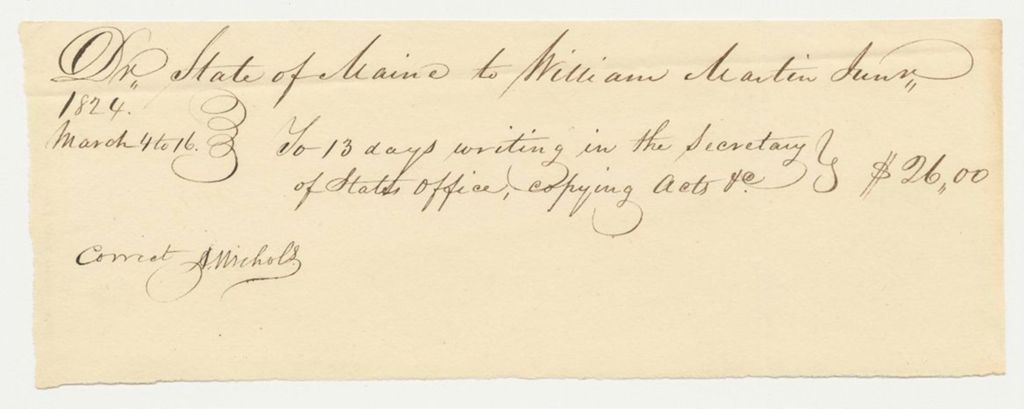 Dr,, State of Maine to William Martin Junr,,
1824.
March 4 to 16. } To 13 days writing in the Secretary }
of States Office, copying Acts &c. $26,,00
Correct A. Nichols